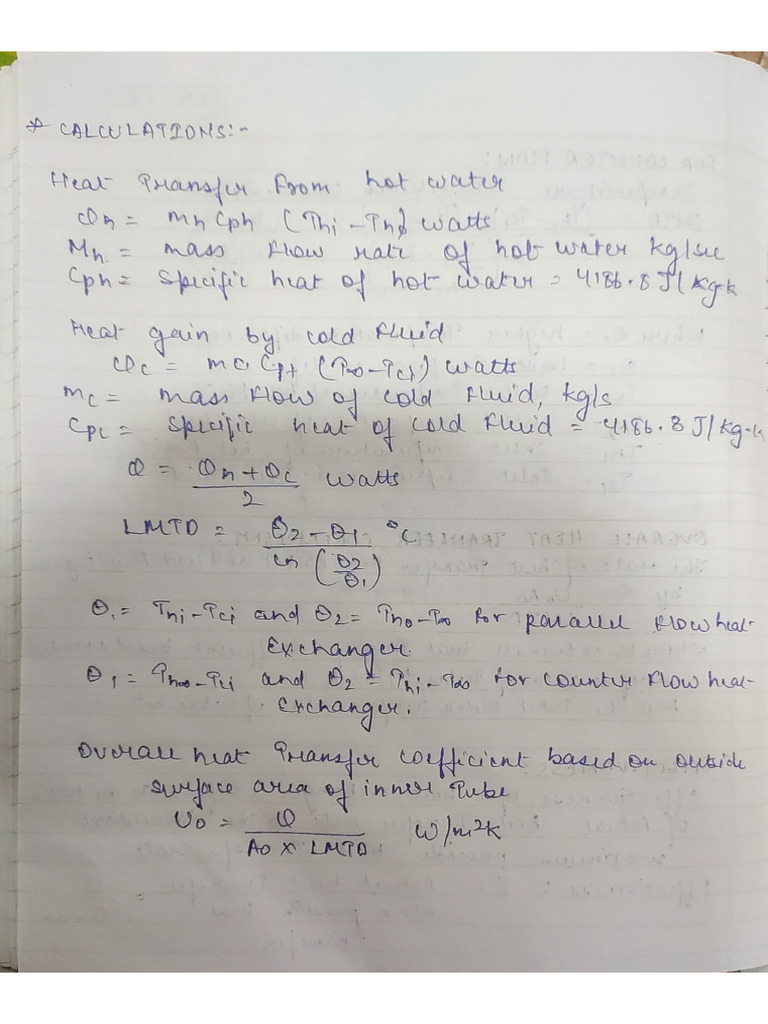 * CALCULATIONS:-
Heat Transfer From hot water
Qh = mh Cph (Thi - Tho) watts
Mh = mass flow rate of hot water kg/sec
Cph = Specific heat of hot water = 4186.8 J/kg-k
Heat gain by cold fluid
Qc = mc Cpc (Tco - Tci) watts
mc = mass flow of cold fluid, kg/s
Cpc = Specific heat of cold fluid = 4186.8 J/kg-k
Q = Qh + Qc / 2 watts
LMTD = θ2 - θ1 / ln (θ2/θ1) °C
θ1 = Thi - Tci and θ2 = Tho - Tco for parallel flow heat
Exchanger.
θ1 = Tho - Tci and θ2 = Thi - Tco for counter flow heat
exchanger.
Overall heat Transfer coefficient based on outside
surface area of inner Tube
Uo = Q / Ao x LMTD W/m²K